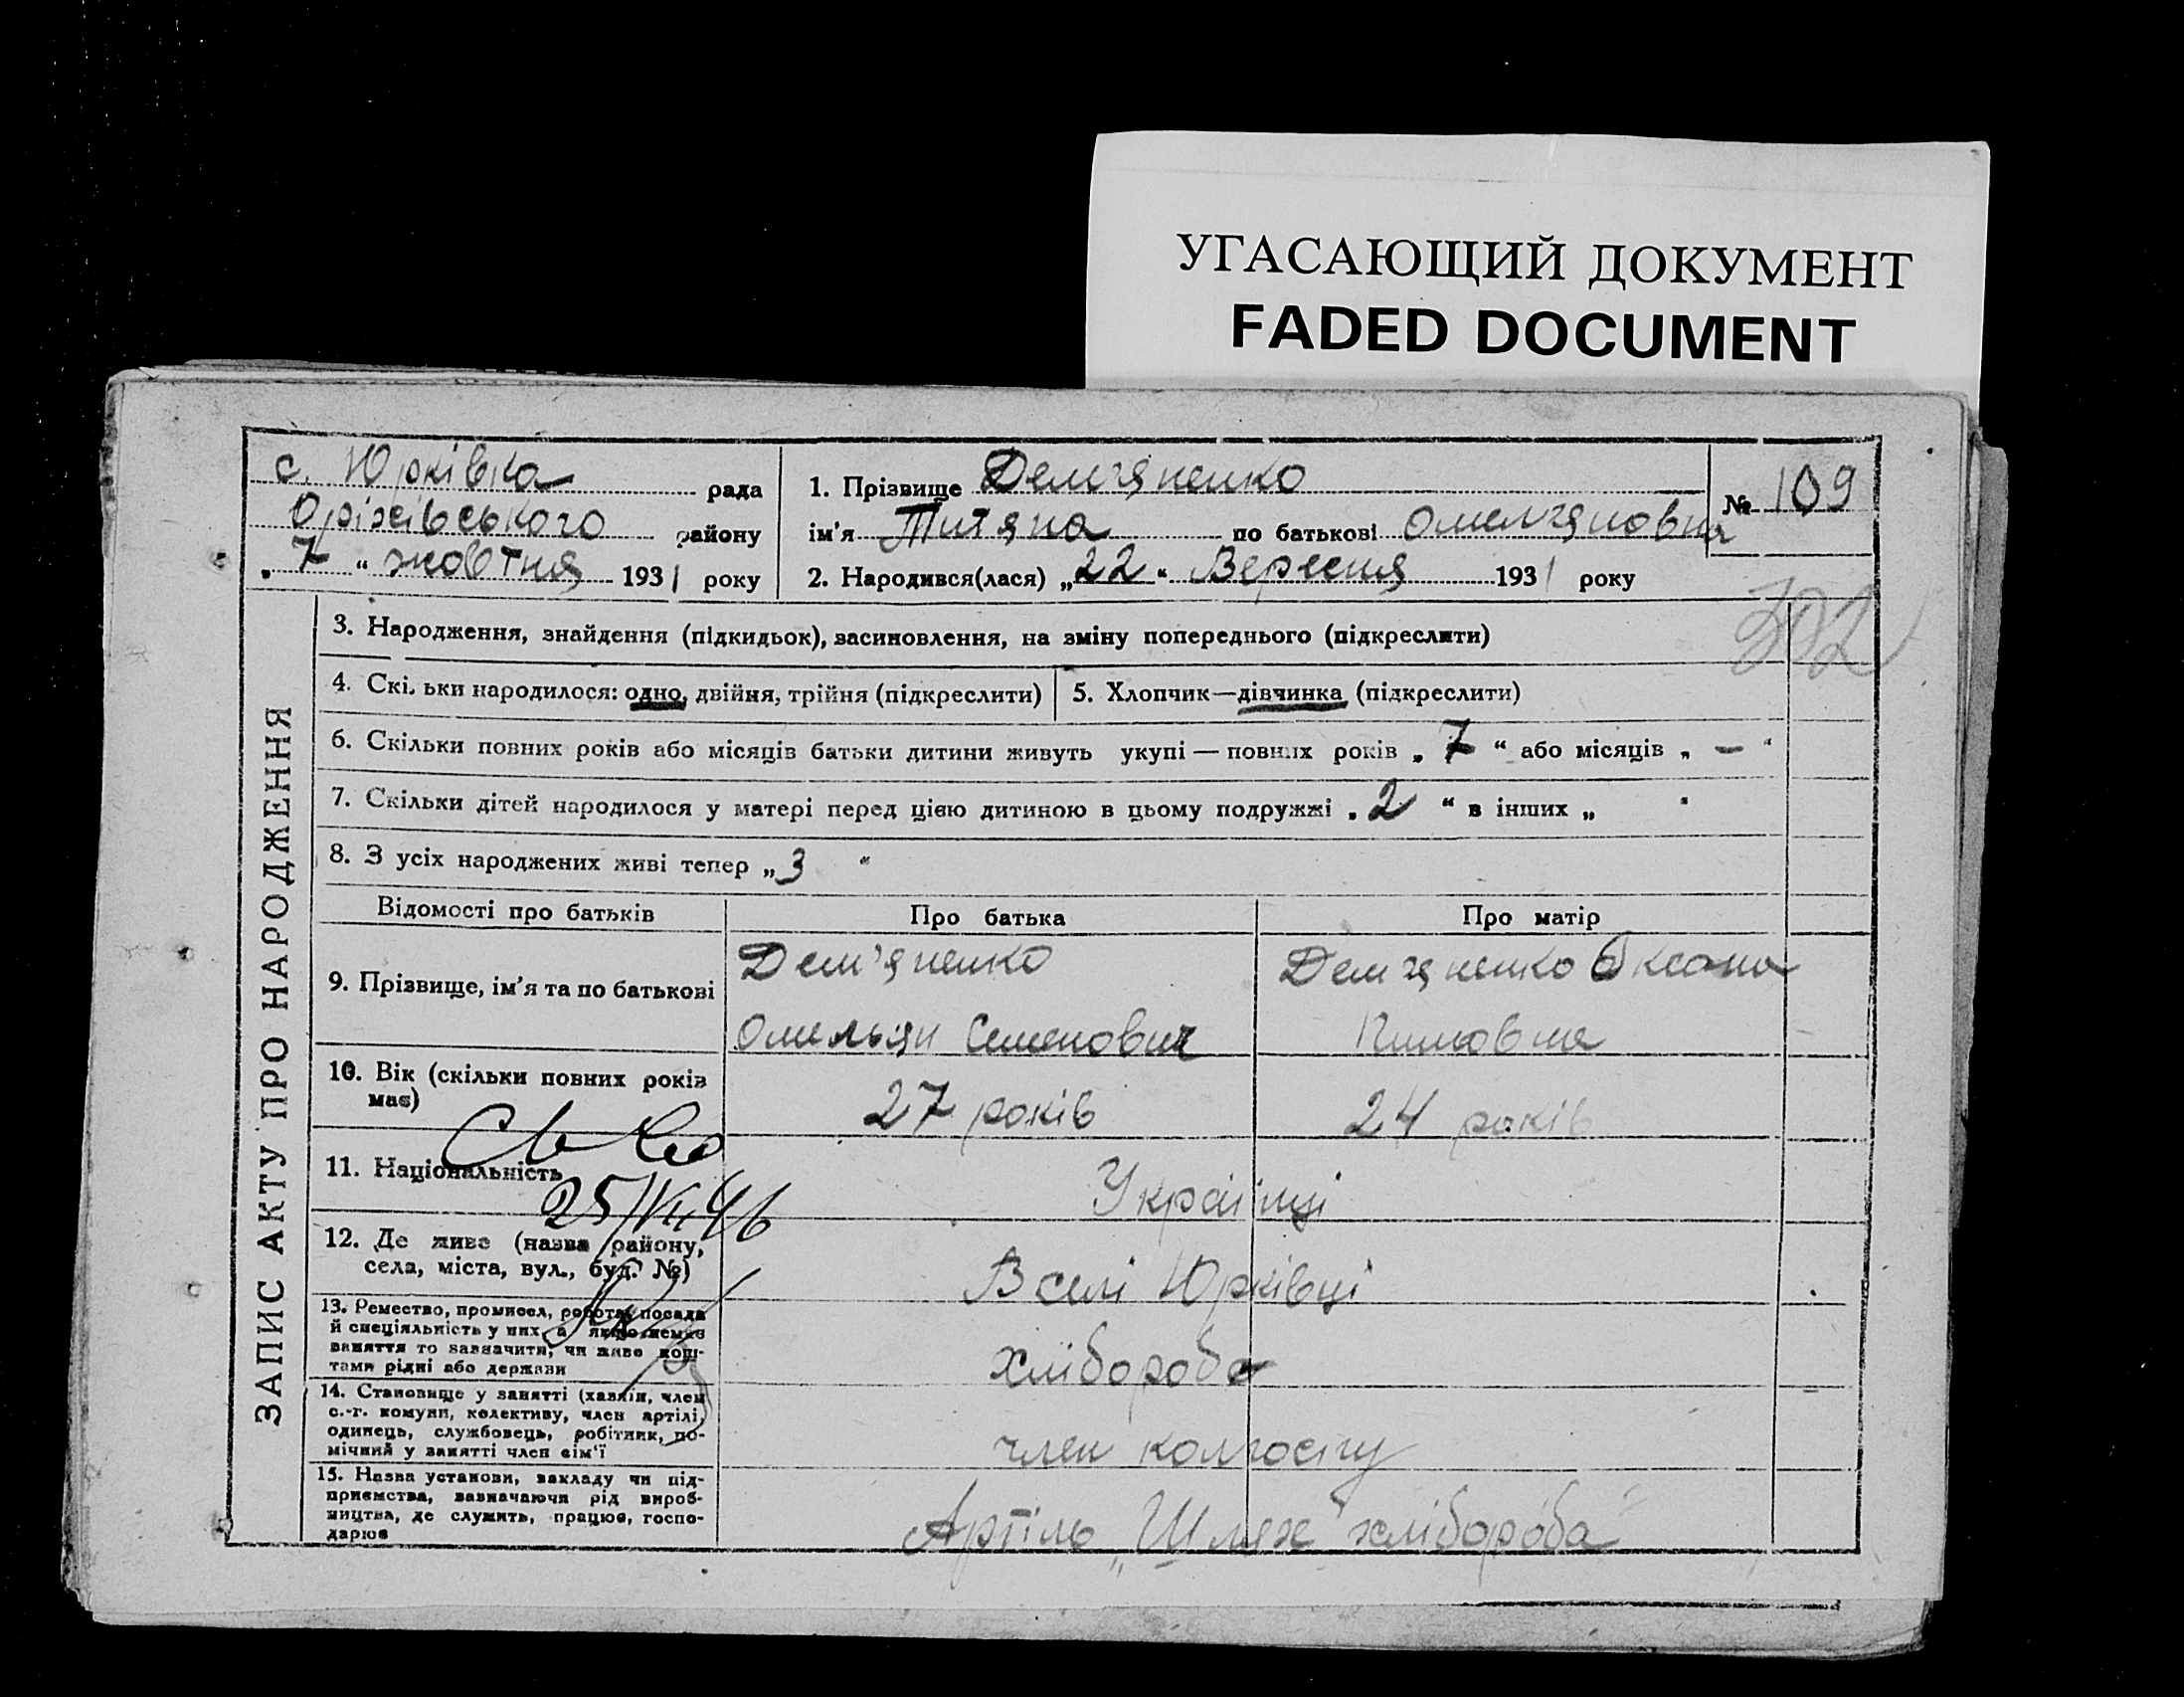 УГАСАЮЩИЙ ДОКУМЕНТ
FADED DOCUMENT
с. Юрківка рада
Оріхівського району
„ 7 “ жовтня 1931 року
1. Прізвище Дем'яненко
ім'я Титяна по батькові Омел'яновна
2. Народився(лася) „22“ Вересня 1931 року
№ 109
302
ЗАПИС АКТУ ПРО НАРОДЖЕННЯ
3. Народження, знайдення (підкидьок), засиновлення, на зміну попереднього (підкреслити)
4. Скільки народилося: одно, двійня, трійня (підкреслити)
5. Хлопчик—дівчинка (підкреслити)
6. Скільки повних років або місяців батьки дитини живуть укупі — повних років „ 7 “ або місяців „ — “
7. Скільки дітей народилося у матері перед цією дитиною в цьому подружжі „ 2 “ в інших „ “
8. З усіх народжених живі тепер „ 3 “
Відомості про батьків
Про батька
Про матір
9. Прізвище, ім'я та по батькові
Дем'яненко
Омельян Семенович
Дем'яненко Оксана
10. Вік (скільки повних років
має)
27 років
24 років
11. Національність
Українці
25/VII 46
12. Де живе (назва району,
села, міста, вул., буд. №)
В селі Юрківці
13. Ремество, промисел, робота, посада
й спеціяльність у них, а якщо немає
заняття то зазначити, чи живе кош-
тами рідні або держави
хлібороби
14. Становище у занятті (хазяїн, член
с.-г. комуни, колективу, член артілі,
одинець, службовець, робітник, по-
мічний у занятті член сім'ї
член колгоспу
15. Назва установи, закладу чи під-
приємства, зазначаючи рід вироб-
ництва, де служить, працює, госпо-
дарює
Артіль „Шлях хлібороба“